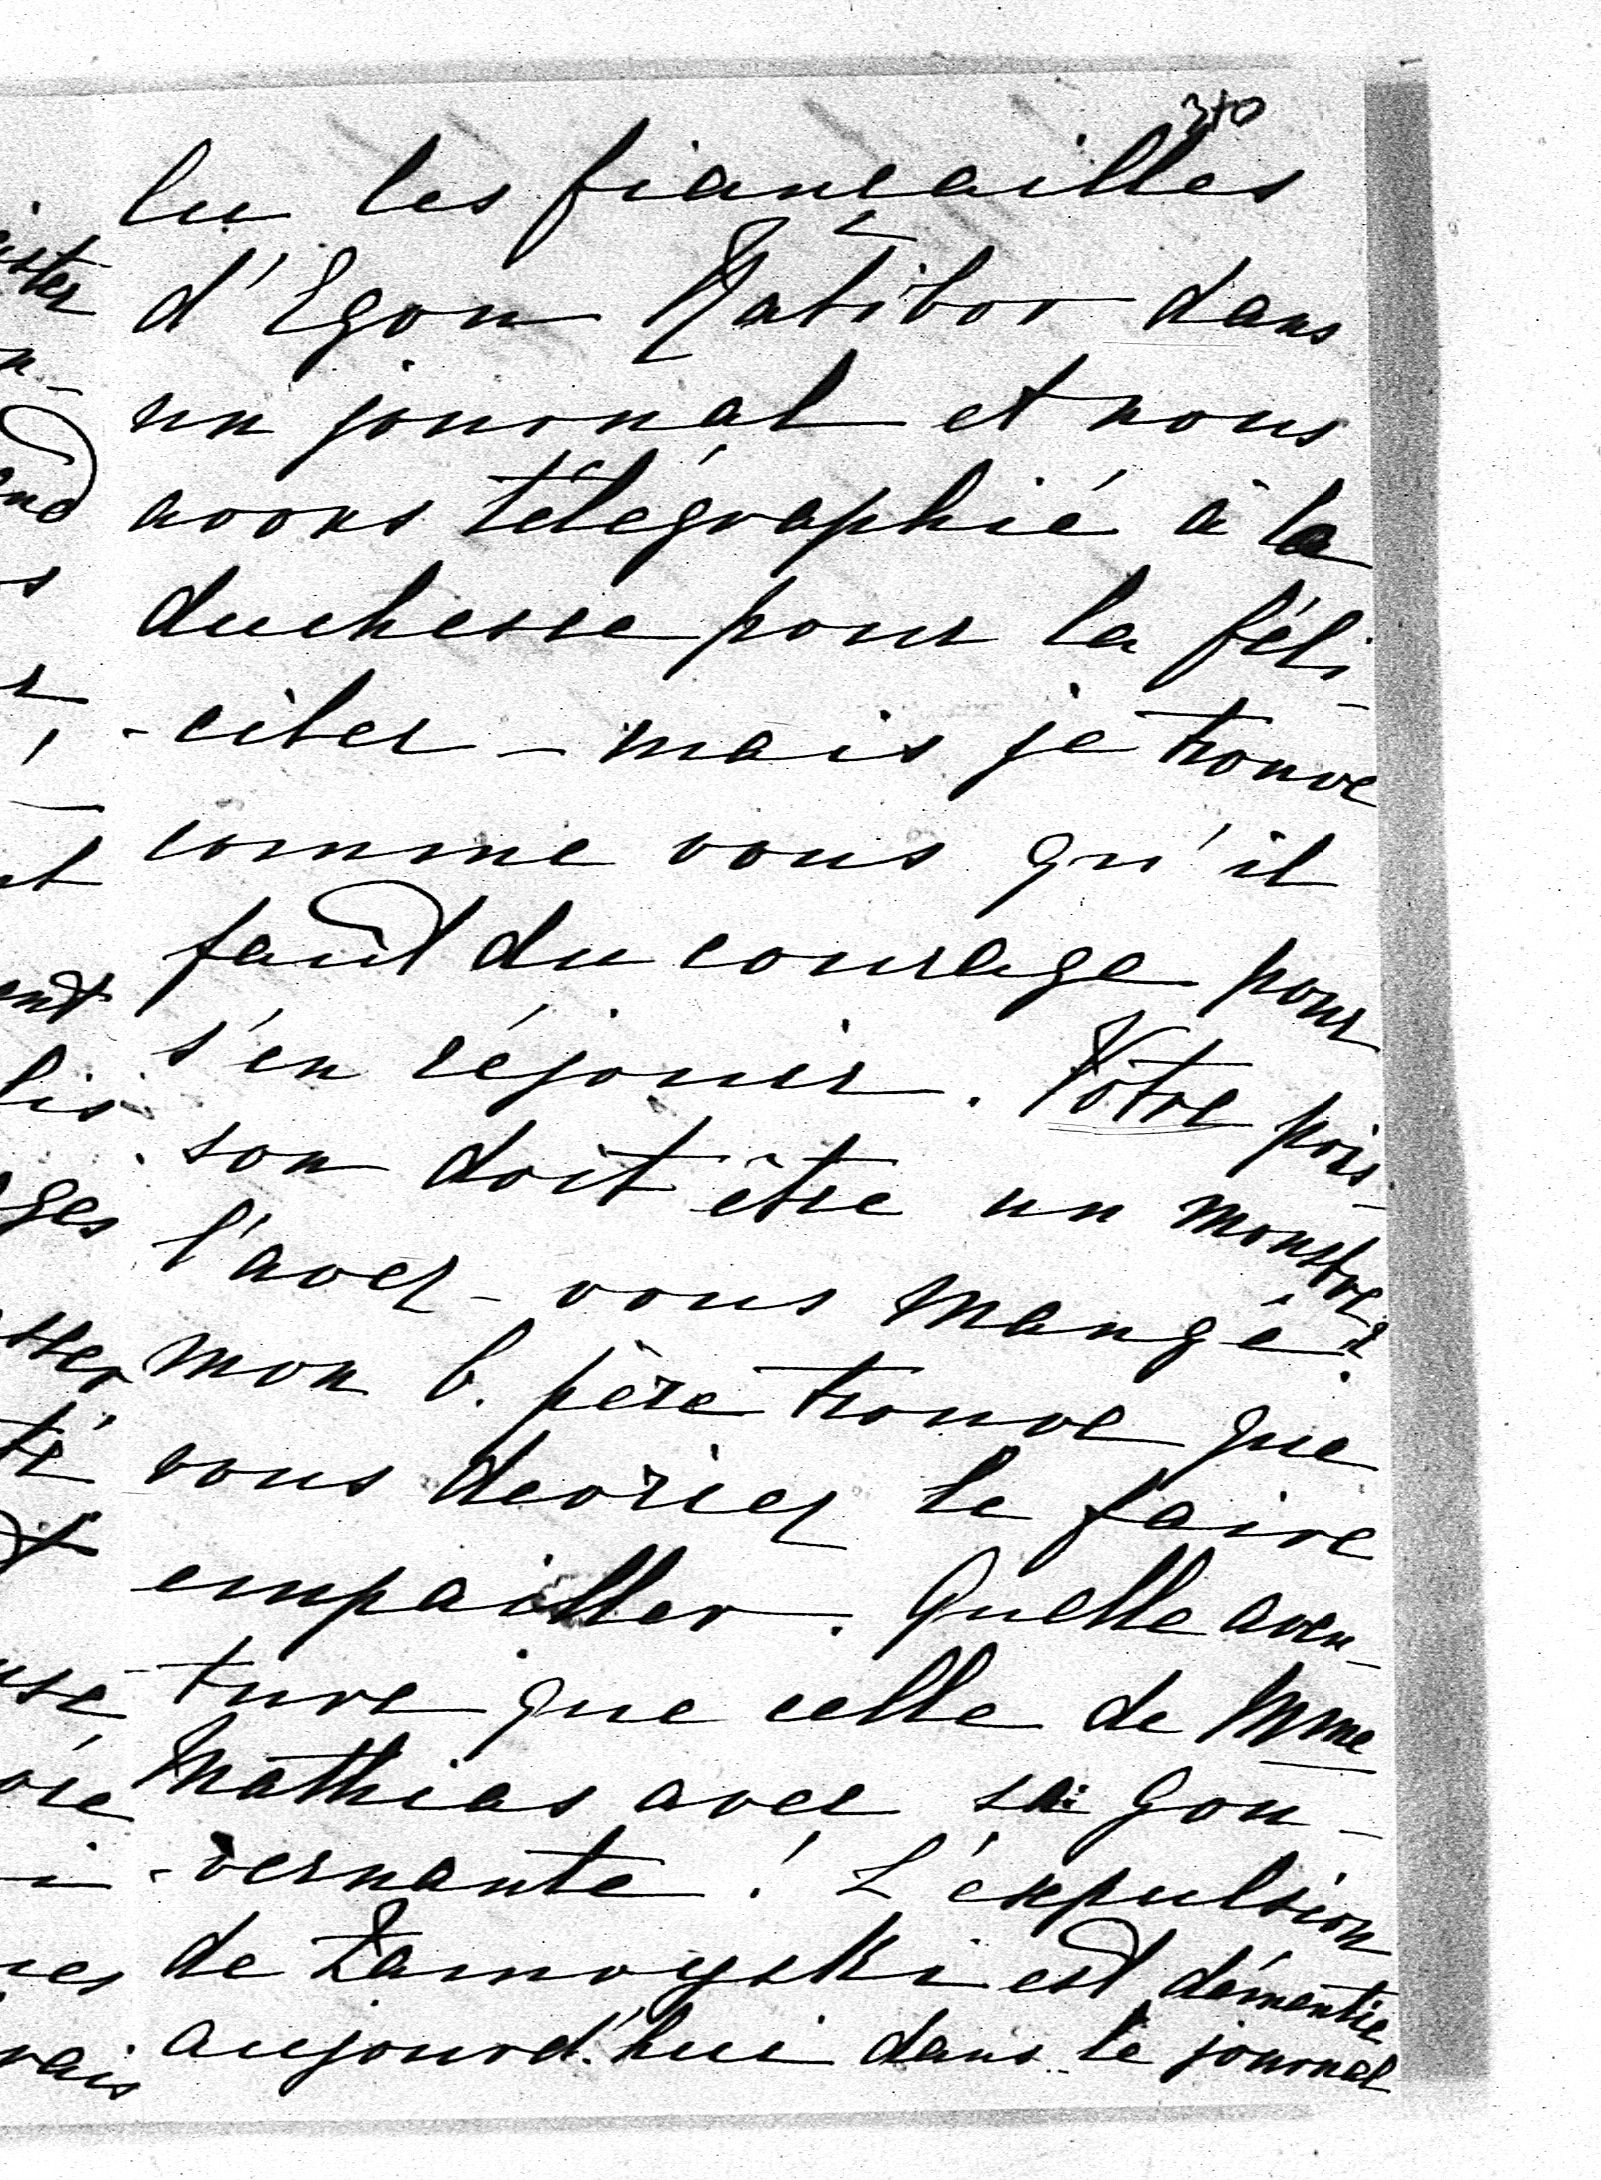 310
lu les fiançailles
d'Egon Ratibor dans
un journal et nous
avons télégraphié à la
duchesse pour la féli-
-citer - mais je trouve
comme vous qu'il
faut du courage pour
s'en réjouir. Votre pois-
son doit être un monstre
l'avez-vous mangé?
mon b. père trouve que
vous devriez le faire
empailler. Quelle aven-
ture que celle de Mme
Mathias avec sa gou-
-vernante! L'expulsion
de Zamoyski est démentie
aujourd'hui dans le journal